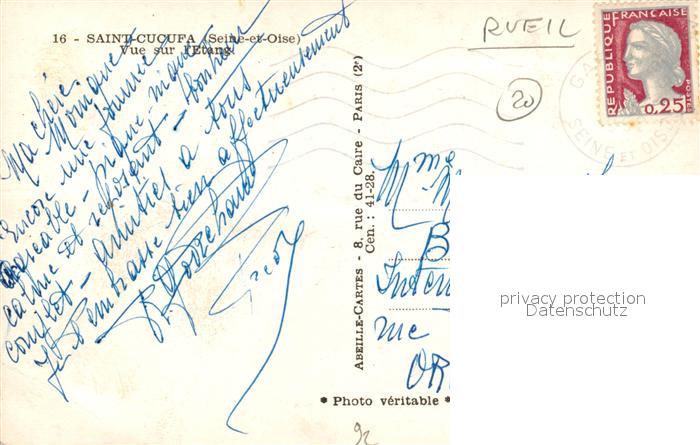 16 - SAINT-CUCUFA (Seine-et-Oise)
Vue sur l'Etang
RUEIL
20
REPUBLIQUE FRANÇAISE
0,25
POSTES
SEINE ET OISE
Ma chère
Monique
Encore une journée
agréable - pique nique
calme et reposant - bonheur
complet - Amitiés à tous
Je t'embrasse bien affectueusement
ABEILLE-CARTES - 8, rue du Caire - PARIS (2e)
Cen. : 41-28.
Mme
B
me
OR
* Photo véritable *
92
privacy protection
Datenschutz